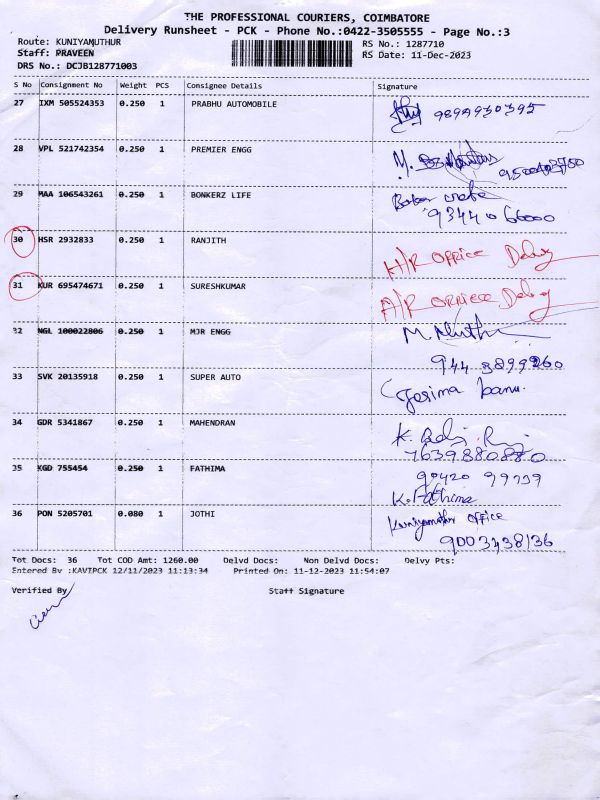 THE PROFESSIONAL COURIERS, COIMBATORE
Delivery Runsheet - PCK - Phone No.:0422-3505555 - Page No.:3
Route: KUNIYAMUTHUR
Staff: PRAVEEN
DRS No.: DCJB128771003
RS No.: 1287710
RS Date: 11-Dec-2023
S No Consignment No Weight PCS Consignee Details Signature
27 IXM 505524353 0.250 1 PRABHU AUTOMOBILE 9894930395
28 VPL 521742354 0.250 1 PREMIER ENGG M.
29 MAA 106543261 0.250 1 BONKERZ LIFE
93440 66000
30 HSR 2932833 0.250 1 RANJITH H/R OFFICE
31 KUR 695474671 0.250 1 SURESHKUMAR A/R
32 NGL 100022806 0.250 1 MJR ENGG M. Muthu
944 3899260
33 SVK 20135918 0.250 1 SUPER AUTO Jesima banu.
34 GDR 5341867 0.250 1 MAHENDRAN K.
7639880880
35 KGD 755454 0.250 1 FATHIMA 90420 99739
K. Fathima
36 PON 5205701 0.080 1 JOTHI Kuniyamuthur office
9003438136
Tot Docs: 36 Tot COD Amt: 1260.00 Delvd Docs: Non Delvd Docs: Delvy Pts:
Entered By :KAVIPCK 12/11/2023 11:13:34 Printed On: 11-12-2023 11:54:07
Verified By Staff Signature